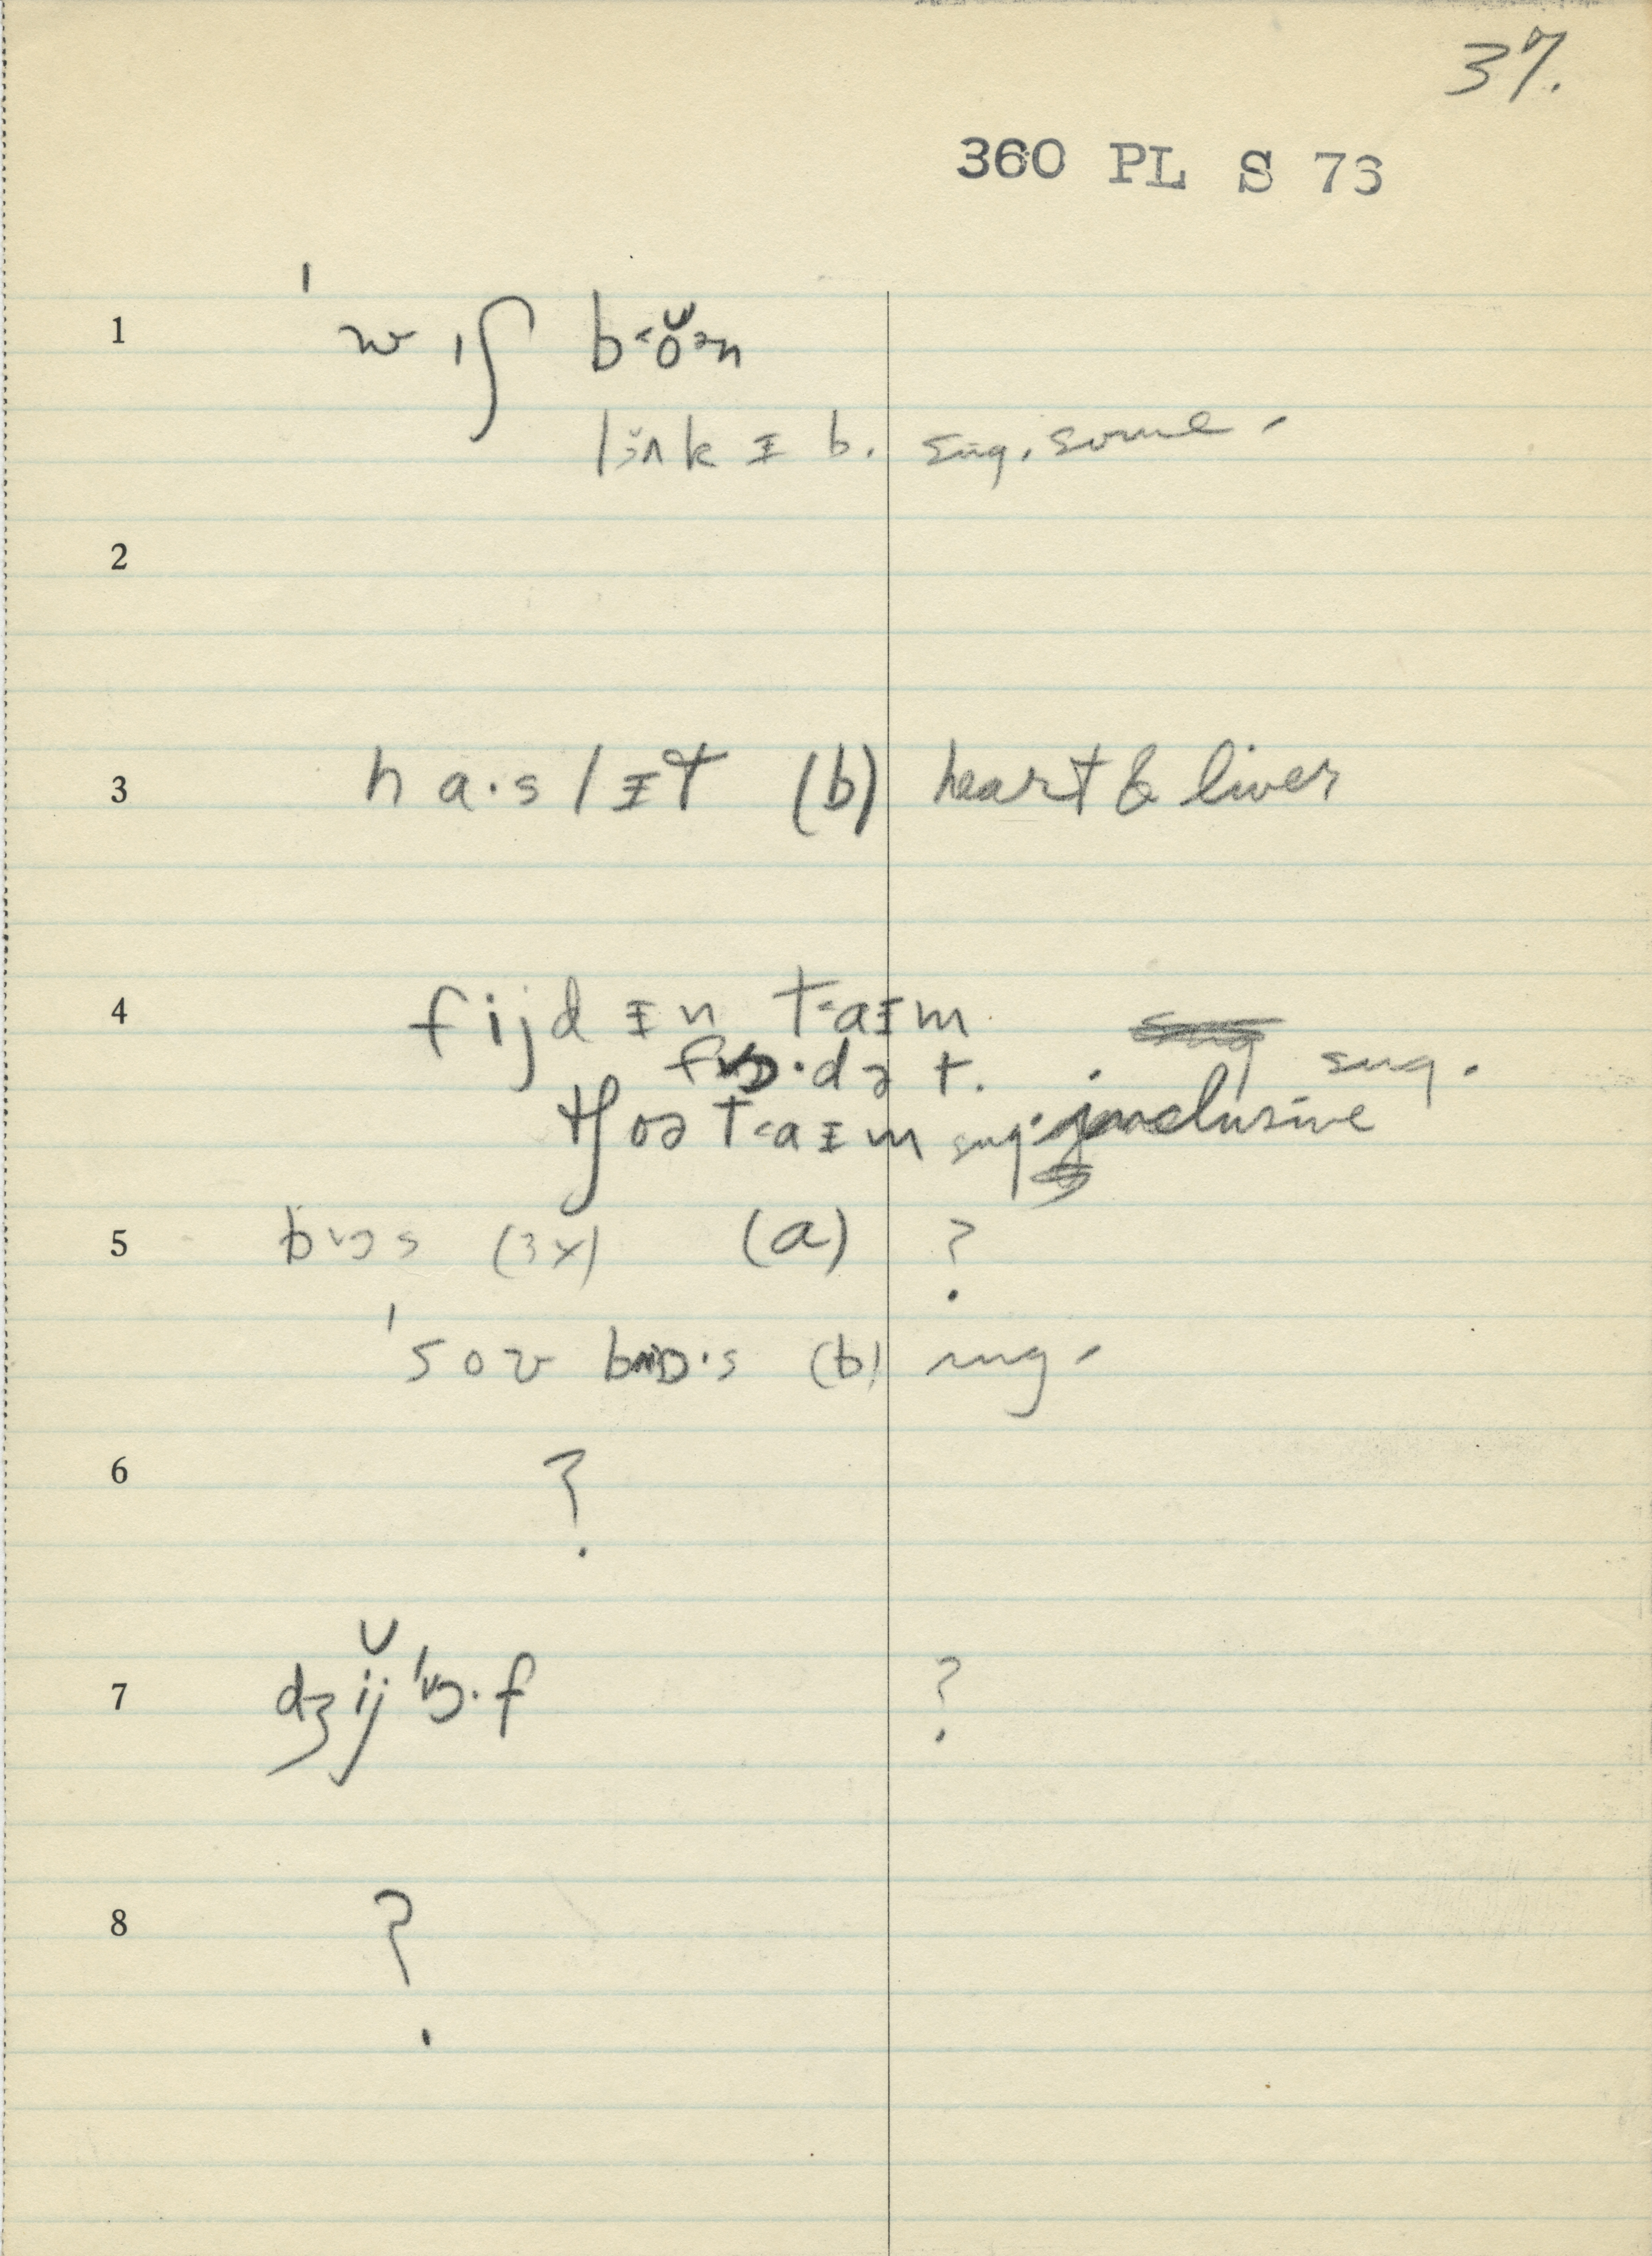 37.
360 PL S 76
1 ˈw ɪʃ b˂ŏ˃n
lɜ̆ʌk ɪ b. sug. some -
2
3 h a·s l ɪ t (b) heart & liver
4 fijd ɪn t˂aɪm
fɒ·də t. sug.
tʃoə t˂aɪm sug. inclusive
5 bɒs (3x) (a) ?
ˈsov bɒ·s (b) sug -
6 ?
7 dʒĭjˈɒ·f ?
8 ?